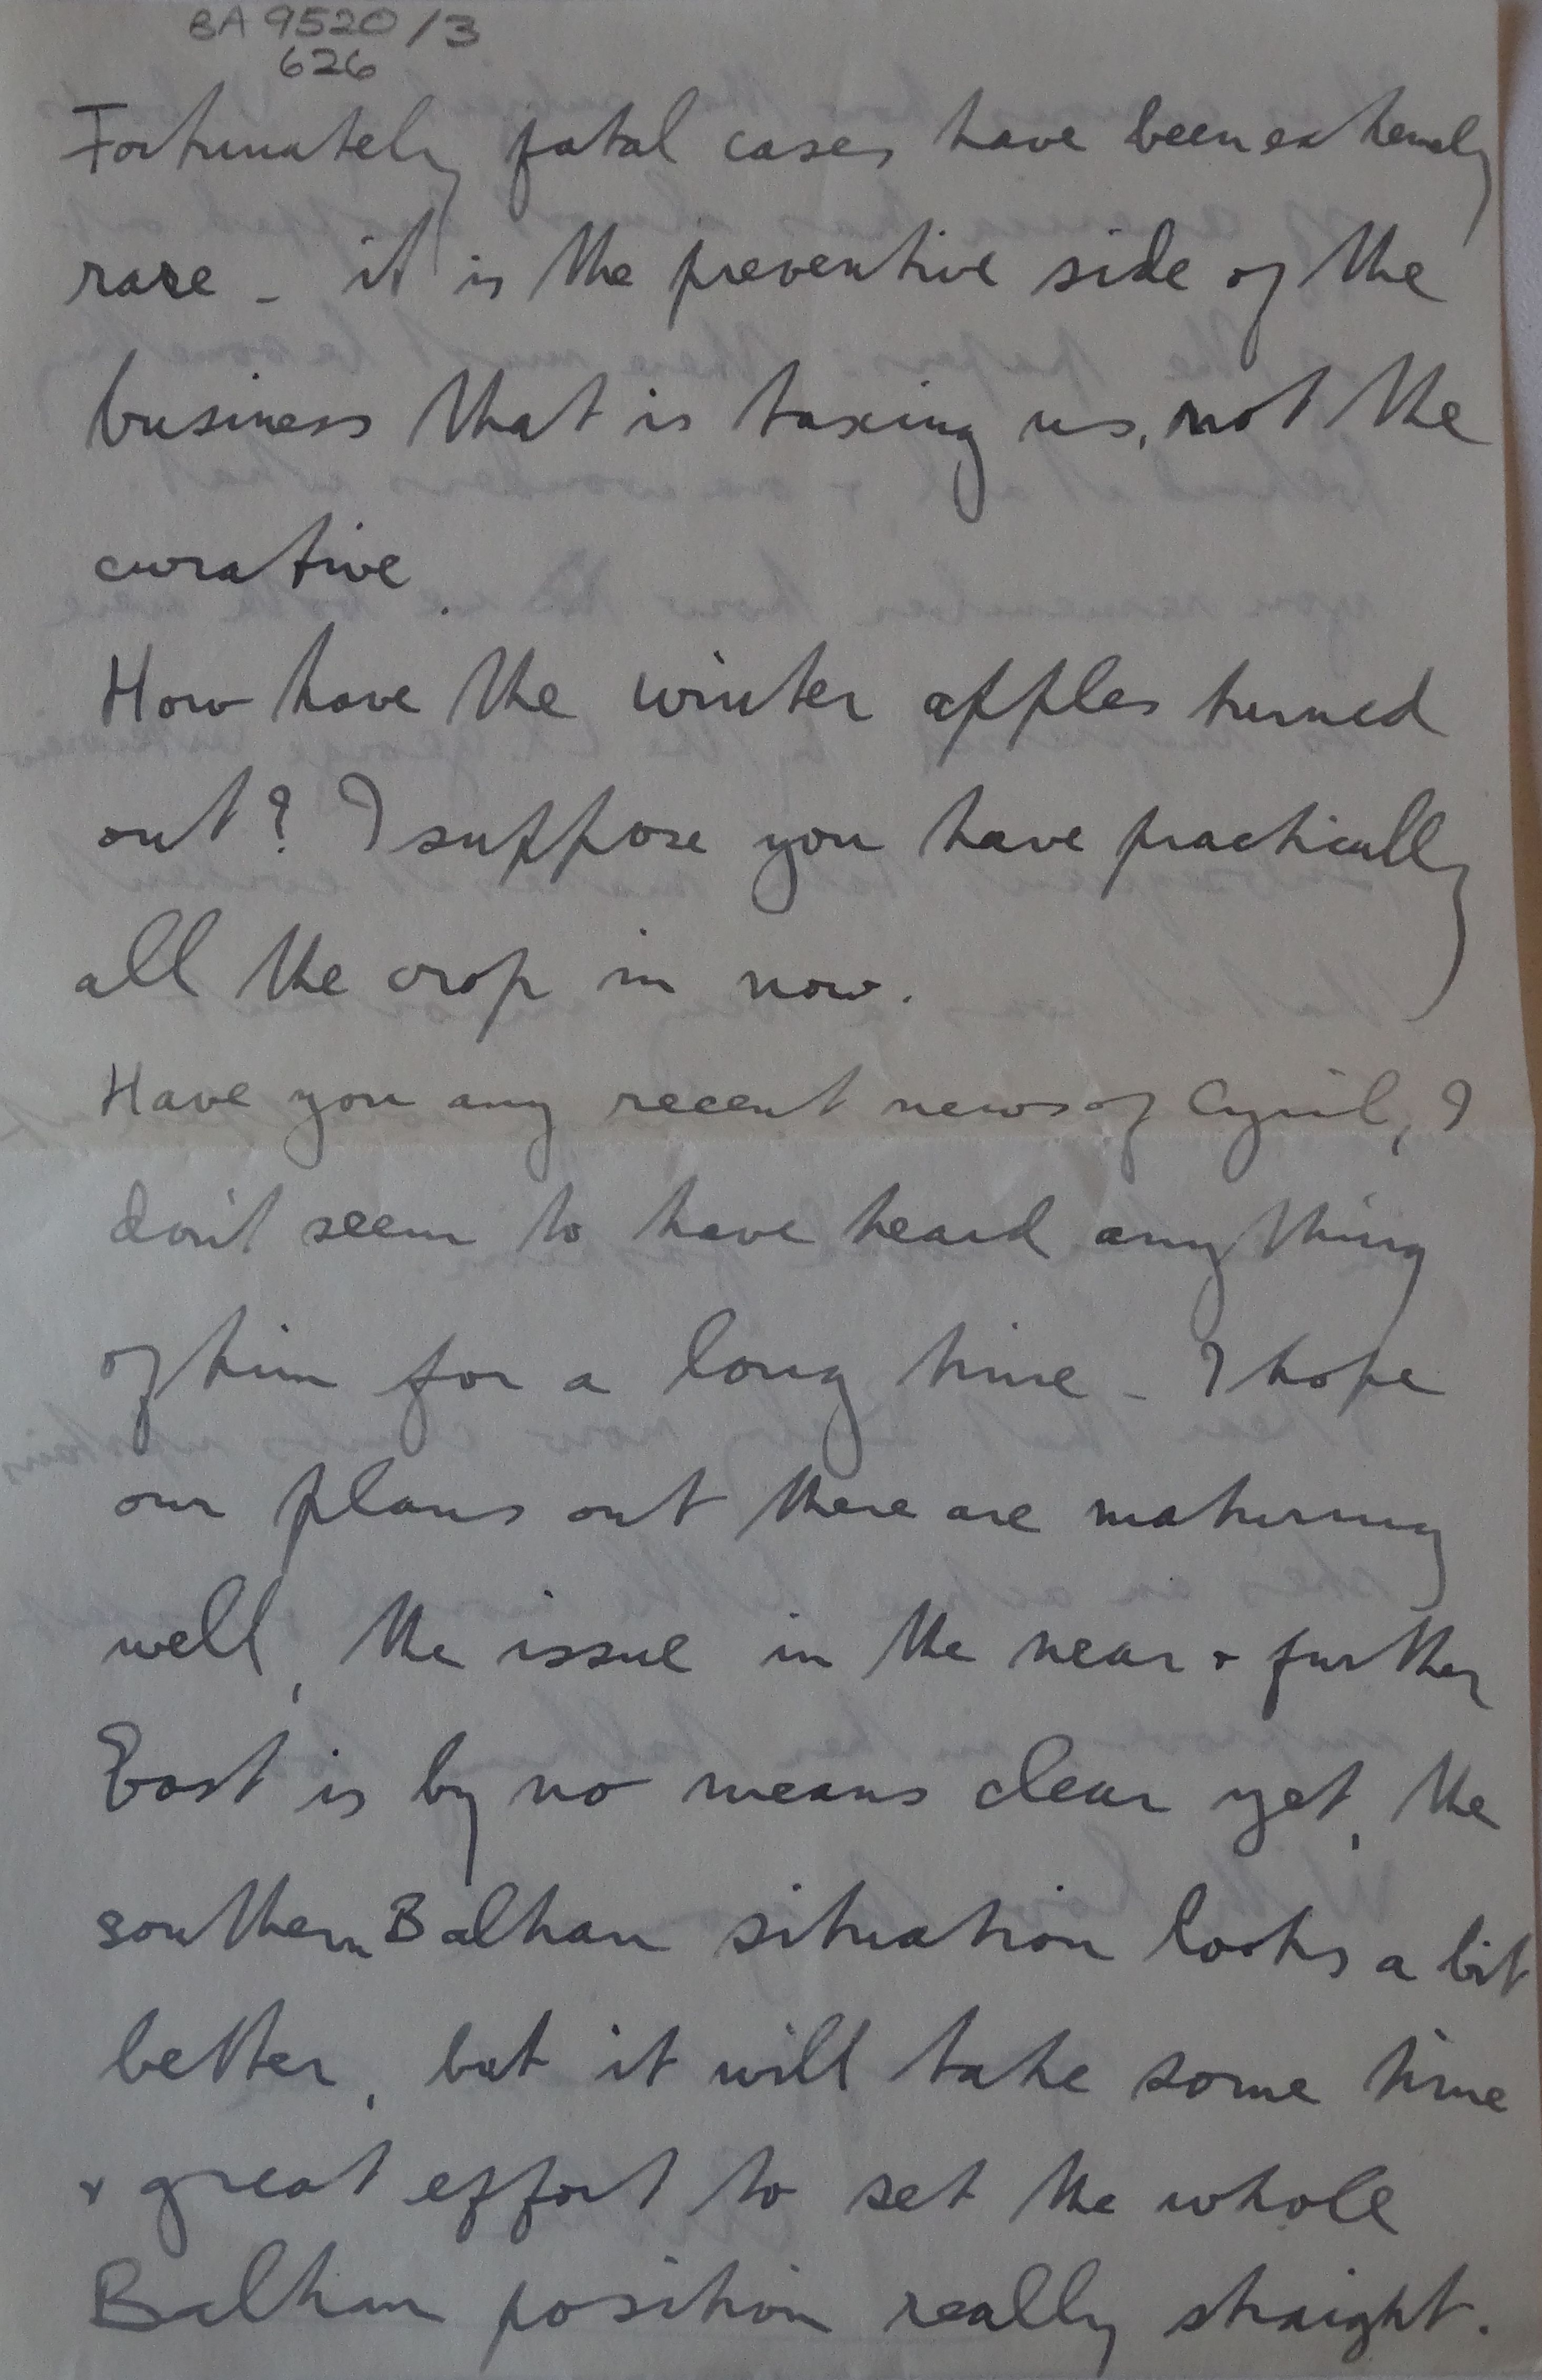 BA 9520/3
626
Fortunately fatal cases have been extremely
rare - it is the preventive side of the
business that is taxing us, not the
curative.
How have the winter apples turned
out? I suppose you have practically
all the crop in now.
Have you any recent news of Cyril, I
don't seem to have heard anything
of him for a long time - I hope
our plans out there are maturing
well, the issue in the near & further
East is by no means clear yet, the
southern Balkan situation looks a bit
better, but it will take some time
& great effort to set the whole
Balkan position really straight.